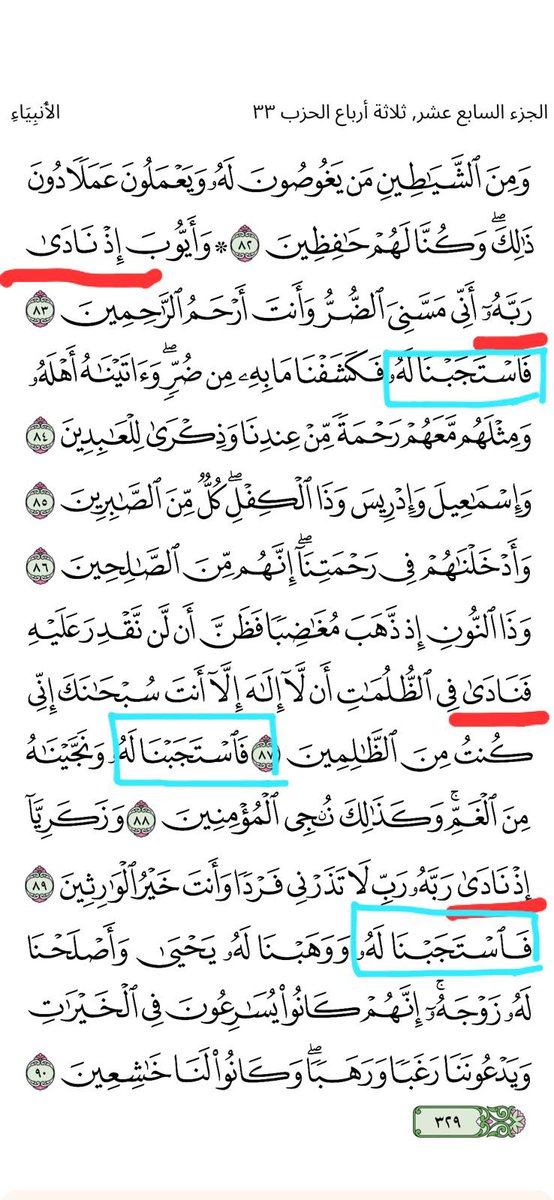 الجزء السابع عشر, ثلاثة أرباع الحزب ٣٣
الأنبِيَاءِ
وَمِنَ ٱلشَّيَٰطِينِ مَن يَغُوصُونَ لَهُۥ وَيَعۡمَلُونَ عَمَلٗا دُونَ
ذَٰلِكَۖ وَكُنَّا لَهُمۡ حَٰفِظِينَ ٨٢ ۞ وَأَيُّوبَ إِذۡ نَادَىٰ
رَبَّهُۥٓ أَنِّي مَسَّنِيَ ٱلضُّرُّ وَأَنتَ أَرۡحَمُ ٱلرَّٰحِمِينَ ٨٣
فَٱسۡتَجَبۡنَا لَهُۥ فَكَشَفۡنَا مَا بِهِۦ مِن ضُرّٖۖ وَءَاتَيۡنَٰهُ أَهۡلَهُۥ
وَمِثۡلَهُم مَّعَهُمۡ رَحۡمَةٗ مِّنۡ عِندِنَا وَذِكۡرَىٰ لِلۡعَٰبِدِينَ ٨٤
وَإِسۡمَٰعِيلَ وَإِدۡرِيسَ وَذَا ٱلۡكِفۡلِۖ كُلّٞ مِّنَ ٱلصَّٰبِرِينَ ٨٥
وَأَدۡخَلۡنَٰهُمۡ فِي رَحۡمَتِنَآۖ إِنَّهُم مِّنَ ٱلصَّٰلِحِينَ ٨٦
وَذَا ٱلنُّونِ إِذ ذَّهَبَ مُغَٰضِبٗا فَظَنَّ أَن لَّن نَّقۡدِرَ عَلَيۡهِ
فَنَادَىٰ فِي ٱلظُّلُمَٰتِ أَن لَّآ إِلَٰهَ إِلَّآ أَنتَ سُبۡحَٰنَكَ إِنِّي
كُنتُ مِنَ ٱلظَّٰلِمِينَ ٨٧ فَٱسۡتَجَبۡنَا لَهُۥ وَنَجَّيۡنَٰهُ
مِنَ ٱلۡغَمِّۚ وَكَذَٰلِكَ نُـۨجِي ٱلۡمُؤۡمِنِينَ ٨٨ وَزَكَرِيَّآ
إِذۡ نَادَىٰ رَبَّهُۥ رَبِّ لَا تَذَرۡنِي فَرۡدٗا وَأَنتَ خَيۡرُ ٱلۡوَٰرِثِينَ ٨٩
فَٱسۡتَجَبۡنَا لَهُۥ وَوَهَبۡنَا لَهُۥ يَحۡيَىٰ وَأَصۡلَحۡنَا
لَهُۥ زَوۡجَهُۥٓۚ إِنَّهُمۡ كَانُواْ يُسَٰرِعُونَ فِي ٱلۡخَيۡرَٰتِ
وَيَدۡعُونَنَا رَغَبٗا وَرَهَبٗاۖ وَكَانُواْ لَنَا خَٰشِعِينَ ٩٠
٣٢٩